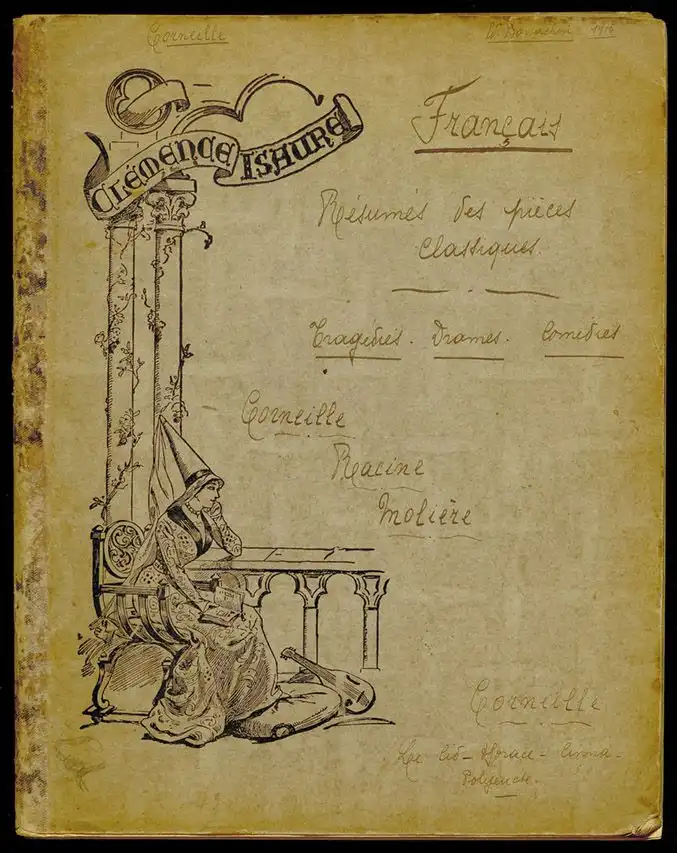 Corneille
1916
CLÉMENCE ISAURE
Français
Résumés des pièces
Classiques.
Tragédies. Drames. Comédies
Corneille
Racine
Molière
Corneille
Le Cid - Horace - Cinna -
Polyeucte.